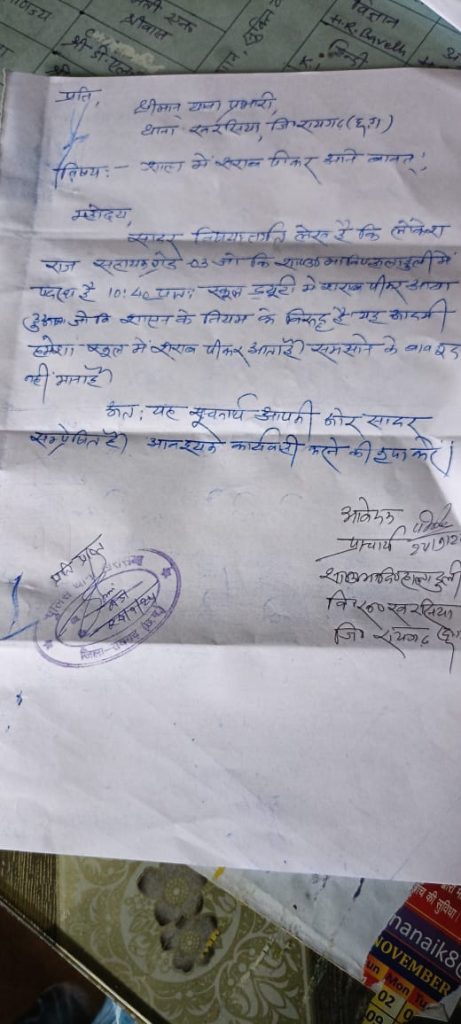 विज्ञान
H.R.
हिन्दी
K.
श्री.डी.
प्रति,
श्रीमान थाना प्रभारी,
थाना खरसिया, जि.रायगढ़ (छ.ग)
विषय:- शाला में शराब पीकर आने बाबत्!
महोदय,
सादर विषयान्तर्गत लेख है कि लोकेश
राज सहायक ग्रेड 03 जो कि में
पदस्थ है 10:40 प्रातः स्कूल ड्यूटी में शराब पीकर आया
हुआ जो कि शासन के नियम के विरुद्ध है यह आदमी
हमेशा स्कूल में शराब पीकर आता है। समझाने के बावजूद
नहीं मानता है।
अतः यह सूचनार्थ आपकी ओर सादर
सम्प्रेषित है। आवश्यक कार्यवाही करने की कृपा करें।
आवेदक
प्राचार्य
वि.ख. खरसिया
जि. रायगढ़ (छ.ग
प्रति प्राप्त
जिला-रायगढ़ (छ.ग.)
की सुविधा
manaik8
NOVEMBER
Sun Mon Tu
02
09